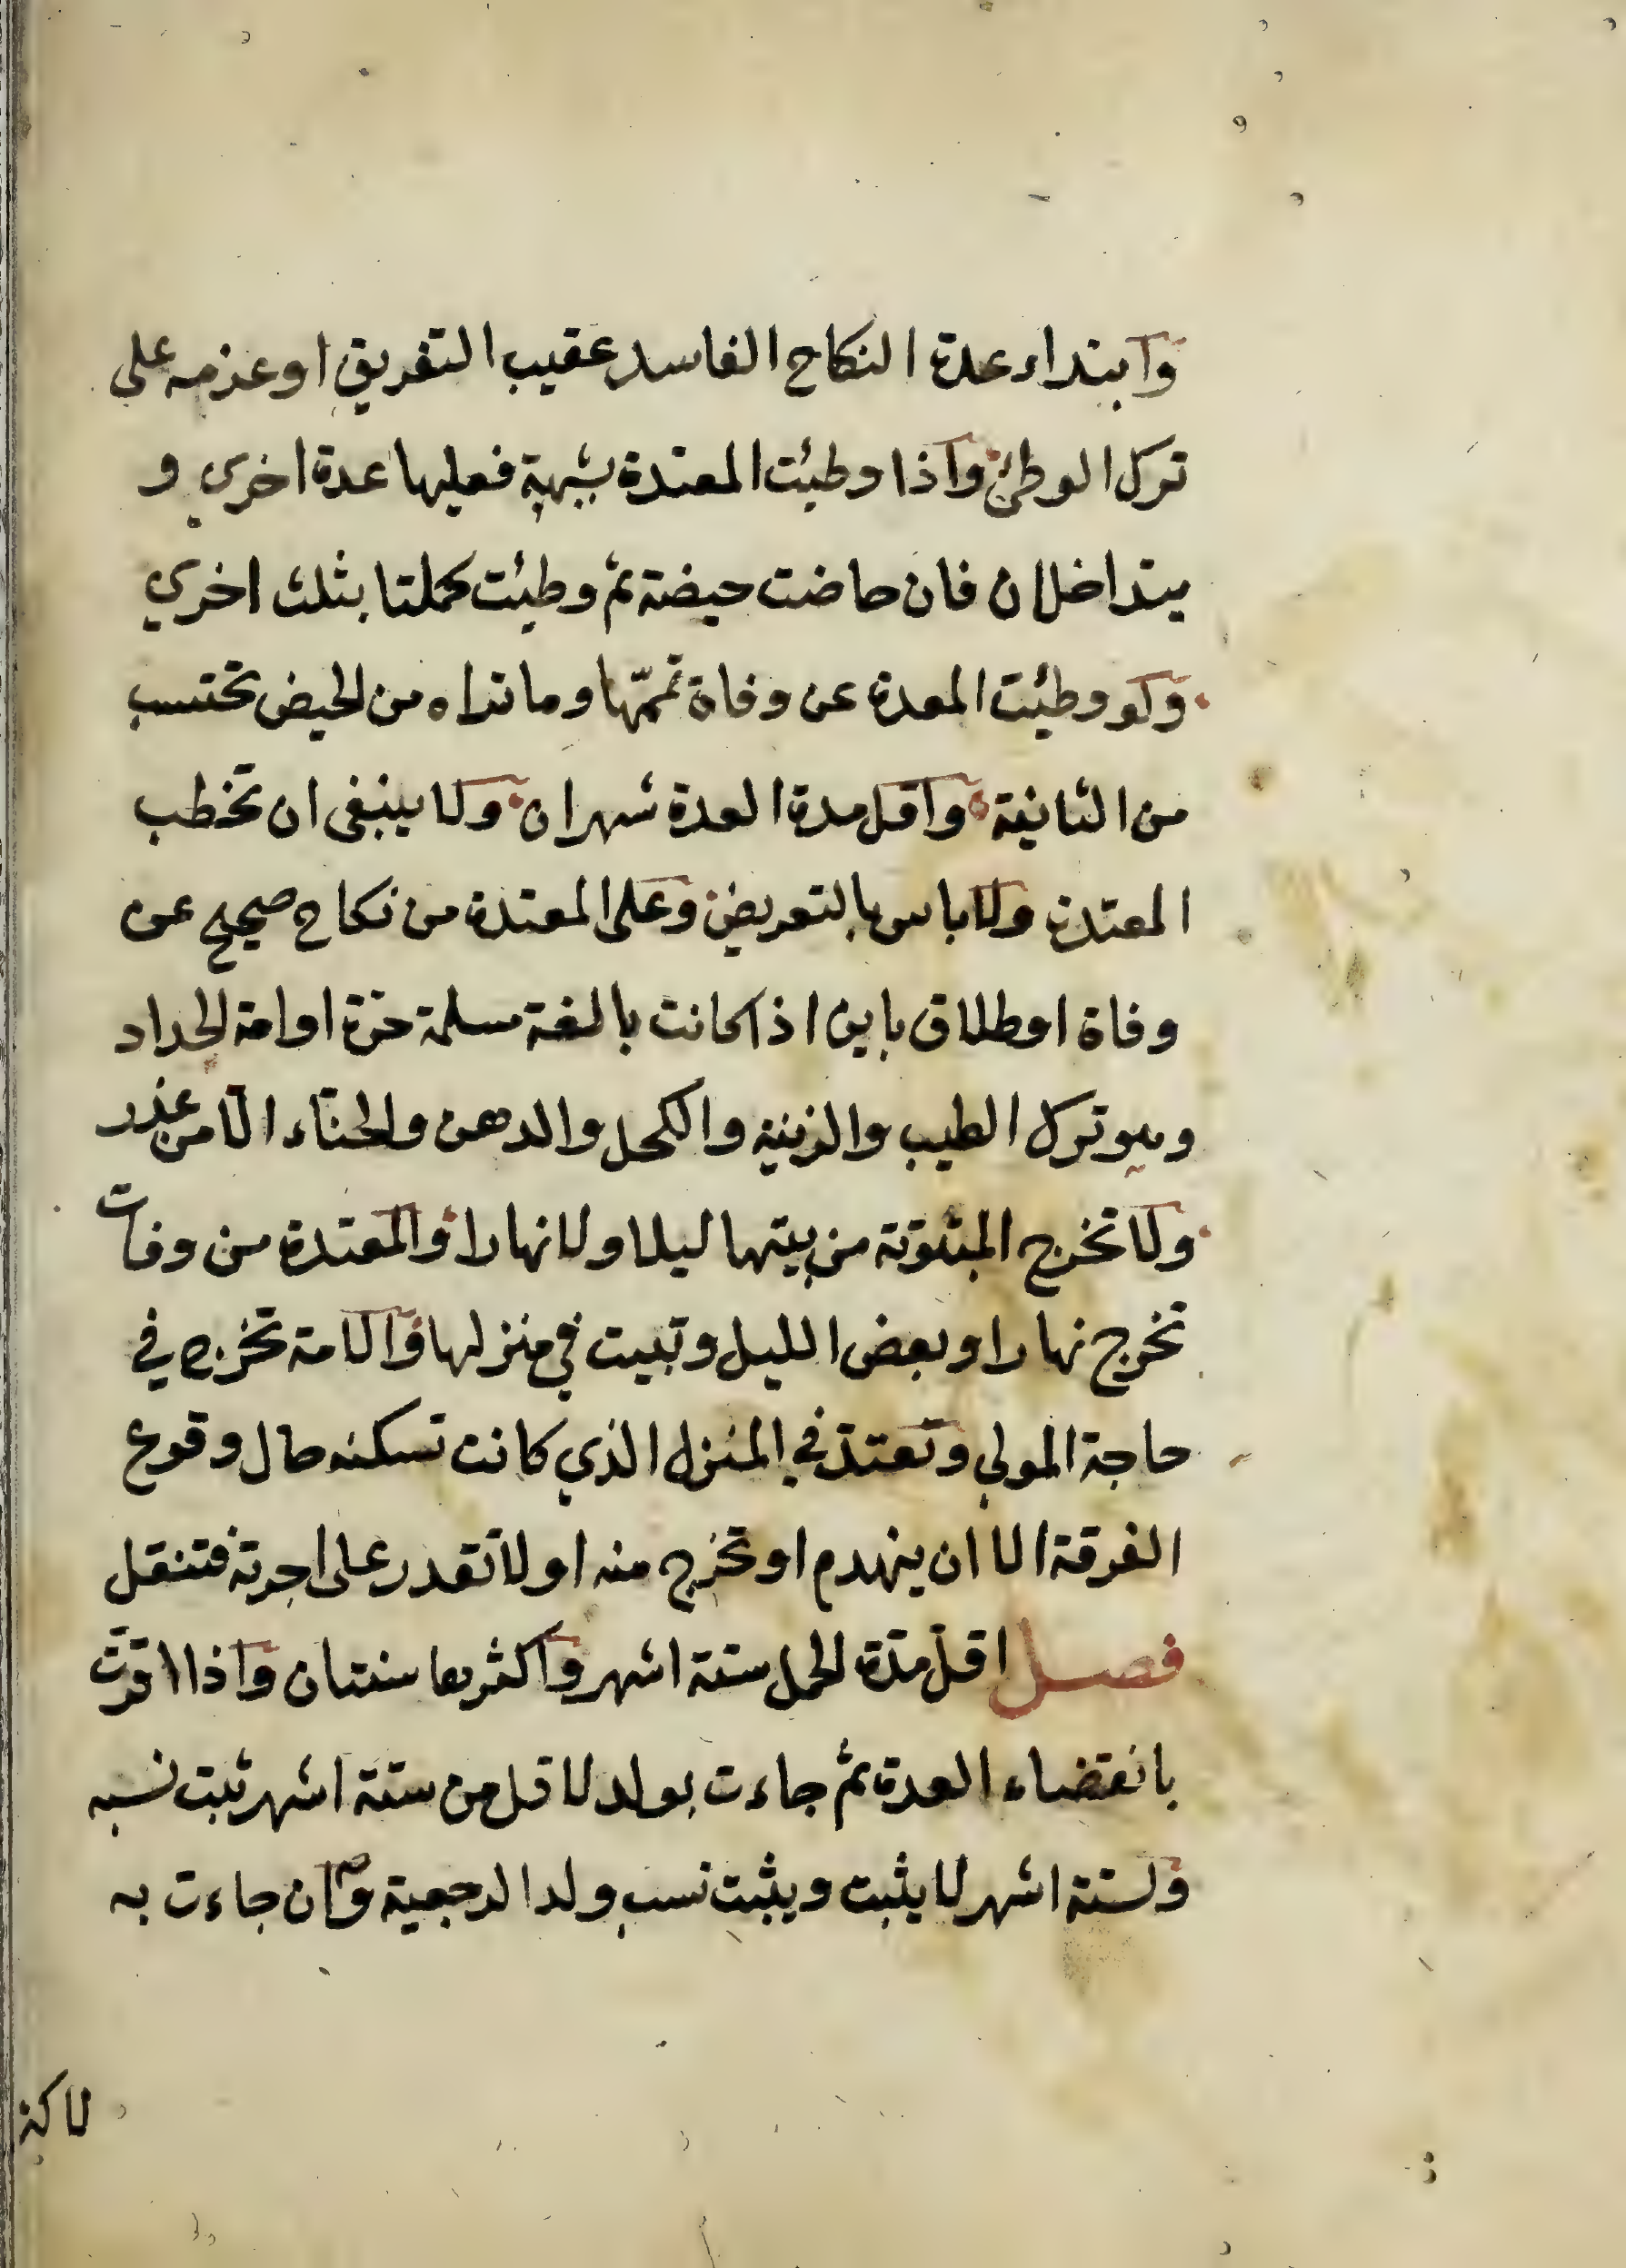 وابتداء عدة النكاح الفاسد عقيب التفريق او عزمه على
ترك الوطئ واذا وطئت المعتدة بشبهة فعليها عدة اخرى و
يتداخلان فان حاضت حيضة ثم وطئت كملتا بثلث اخري
ولو وطئت المعدة عن وفاة تممّها وما تراه من الحيض تحتسب
من الثانية واقل مدة العدة شهران ولا ينبغى ان تخطب
المعتدة ولا باس بالتعريض وعلى المعتدة من نكاح صحيح عن
وفاة او طلاق باين اذا كانت بالغة مسلمة حرّة او امة الحداد
وهو ترك الطيب والزينة والكحل والدهن والحنّاء الّا من عذر
ولا تخرج المبتوتة من بيتها ليلا ولا نهارا والمعتدة من وفات
تخرج نهارا وبعض الليل وتبيت في منزلها والامة تخرج في
حاجة المولي وتعتد في المنزل الذي كانت تسكنه حال وقوع
الفرقة الا ان ينهدم او تخرج منه او لا تقدر على اجرته فتنقل
فصل اقلّ مدّة الحمل ستة اشهر واكثرها سنتان واذا اقرّت
بانقضاء العدة ثم جاءت بولد لاقل من ستة اشهر ثبت نسبه
ولستة اشهر لا يثبت ويثبت نسب ولد الرجعية وان جاءت به
لاكثر